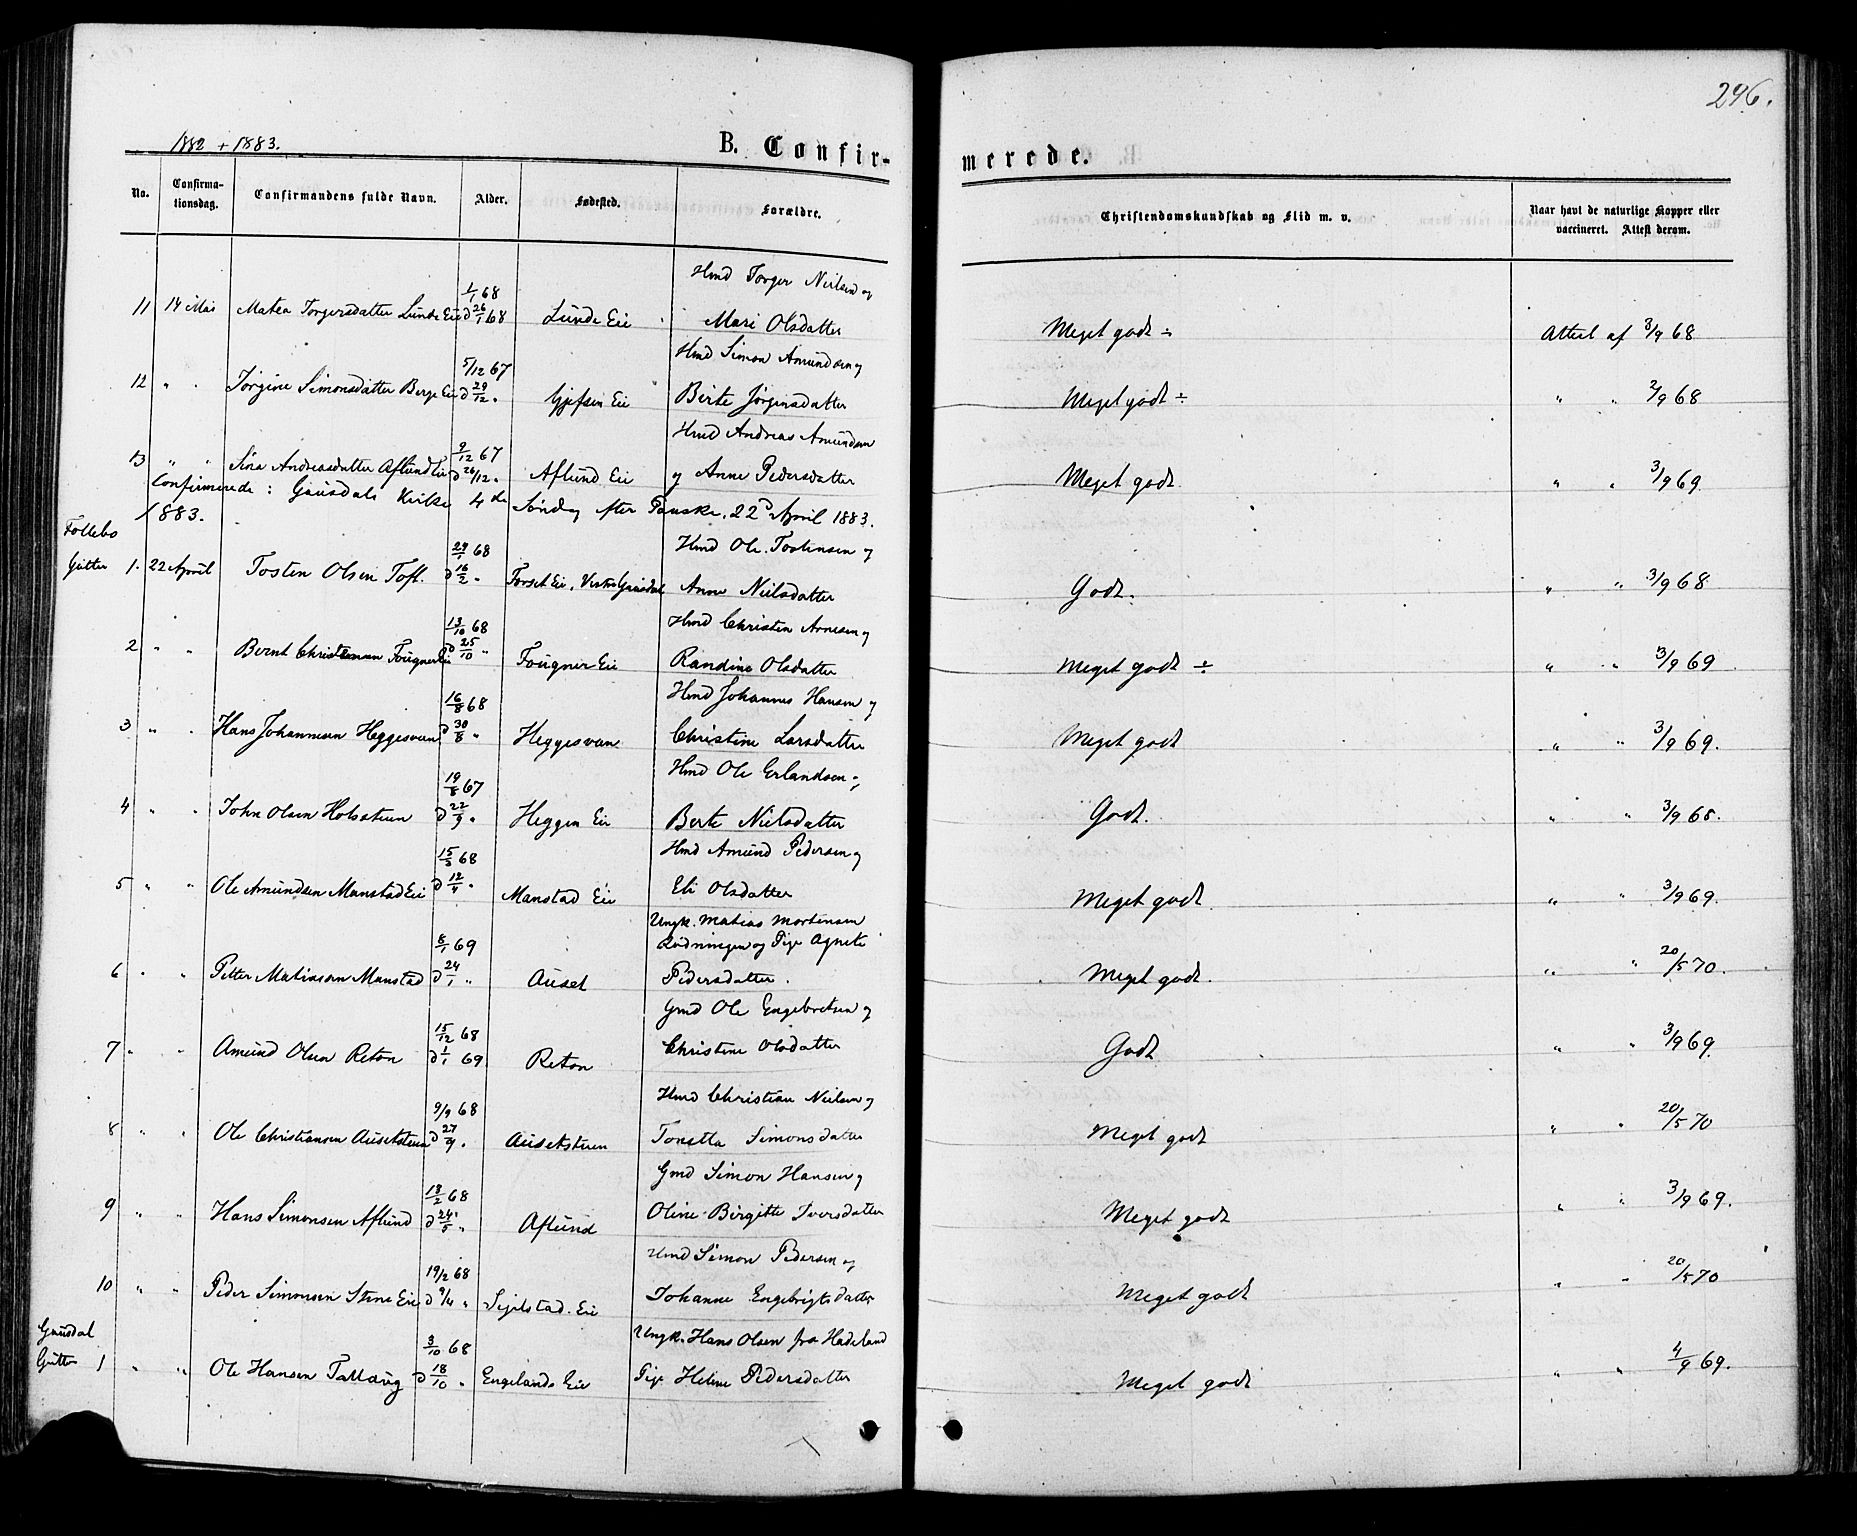 296.
1882 + 1883.
B. Confir-
merede.
No.
Confirma-
tionsdag.
Confirmandens fulde Navn.
Alder.
Fødested.
Forældre.
Christendomskundskab og Flid m. v.
Naar havt de naturlige Kopper eller
vaccineret. Attest derom.
Hmd Torger Nielsen og
1/1 68
11 14 Mai Matea Torgersdatter Lunde Eie d 26/1 68 Lunde Eie Mari Olsdatter Meget godt ÷ Attest af 3/9 68
Hmd Simon Amundsen og
5/12 67
12 " " Jørgine Simonsdatter Berge Eie d 29/12 " Gjefsen Eie Birte Jørgensdatter Meget godt ÷ " " 2/9 68
Hmd Andreas Amundsen
9/12 67
13 " " Sina Andreasdatter Aflund Eie d 26/12 " Aflund Eie og Anne Pedersdatter Meget godt. " " 3/9 69
Confirmerede: Gausdals Kirke 4de Søndag efter Paaske, 22d April 1883.
1883.
Follebo
Hmd Ole Tostensen og
29/1 68
Gutter 1. 22 April Tosten Olsen Toft. d 16/2 " Forset Eie, Vestre Gausdal Anne Nielsdatter Godt. " " 3/9 68
Hmd Christen Arnesen og
13/10 68
2 " " Bernt Christensen Fougner Eie d 25/10 " Fougner Eie Randine Olsdatter Meget godt ÷ " " 3/9 69
Hmd Johannes Hansen og
16/8 68
3 " " Hans Johannesen Heggesvean d 30/8 " Heggesvean Christine Larsdatter Meget godt " " 3/9 69.
Hmd Ole Erlandsen og
19/8 67
4 " " John Olsen Holssteen d 22/9 " Heggen Eie Berte Nielsdatter Godt. " " 3/9 68.
Hmd Amund Pedersen og
15/3 68
5 " " Ole Amundsen Manstad Eie d 12/4 " Manstad Eie Eli Olsdatter Meget godt. " " 3/9 69.
Ungk. Matias Mortensen
8/1 69 Rødningen og Pige Agnete
6 " " Petter Matiassen Manstad d 24/1 " Auset Pedersdatter. Meget godt. " " 20/5 70.
Gmd Ole Engebretsen og
15/12 68
7 " " Amund Olsen Reton d 1/1 69 Reton Christine Olsdatter Godt " " 3/9 69.
Hmd Christian Nielsen og
9/9 68
8 " " Ole Christiansen Ausetsteen d 27/9 " Ausetsteen Tonetta Simonsdatter Meget godt " " 20/5 70
Gmd Simon Hansen og
13/2 68
9 " " Hans Simonsen Aflund d 24/5 " Aflund Oline Birgitte Iversdatter Meget godt " " 3/9 69.
Hmd Simon Pedersen og
19/2 68
10 " " Peder Simonsen Stene Eie d 9/4 " Sijelstad Eie Johanne Engebrigtsdatter Meget godt " " 20/5 70
Gausdal
Ungk. Hans Olsen fra Hadeland
3/10 68
Gutter 1 " " Ole Hansen Tallaug d 18/10 " Engelands Eie Pige Heline Pedersdatter Meget godt " " 4/9 69.